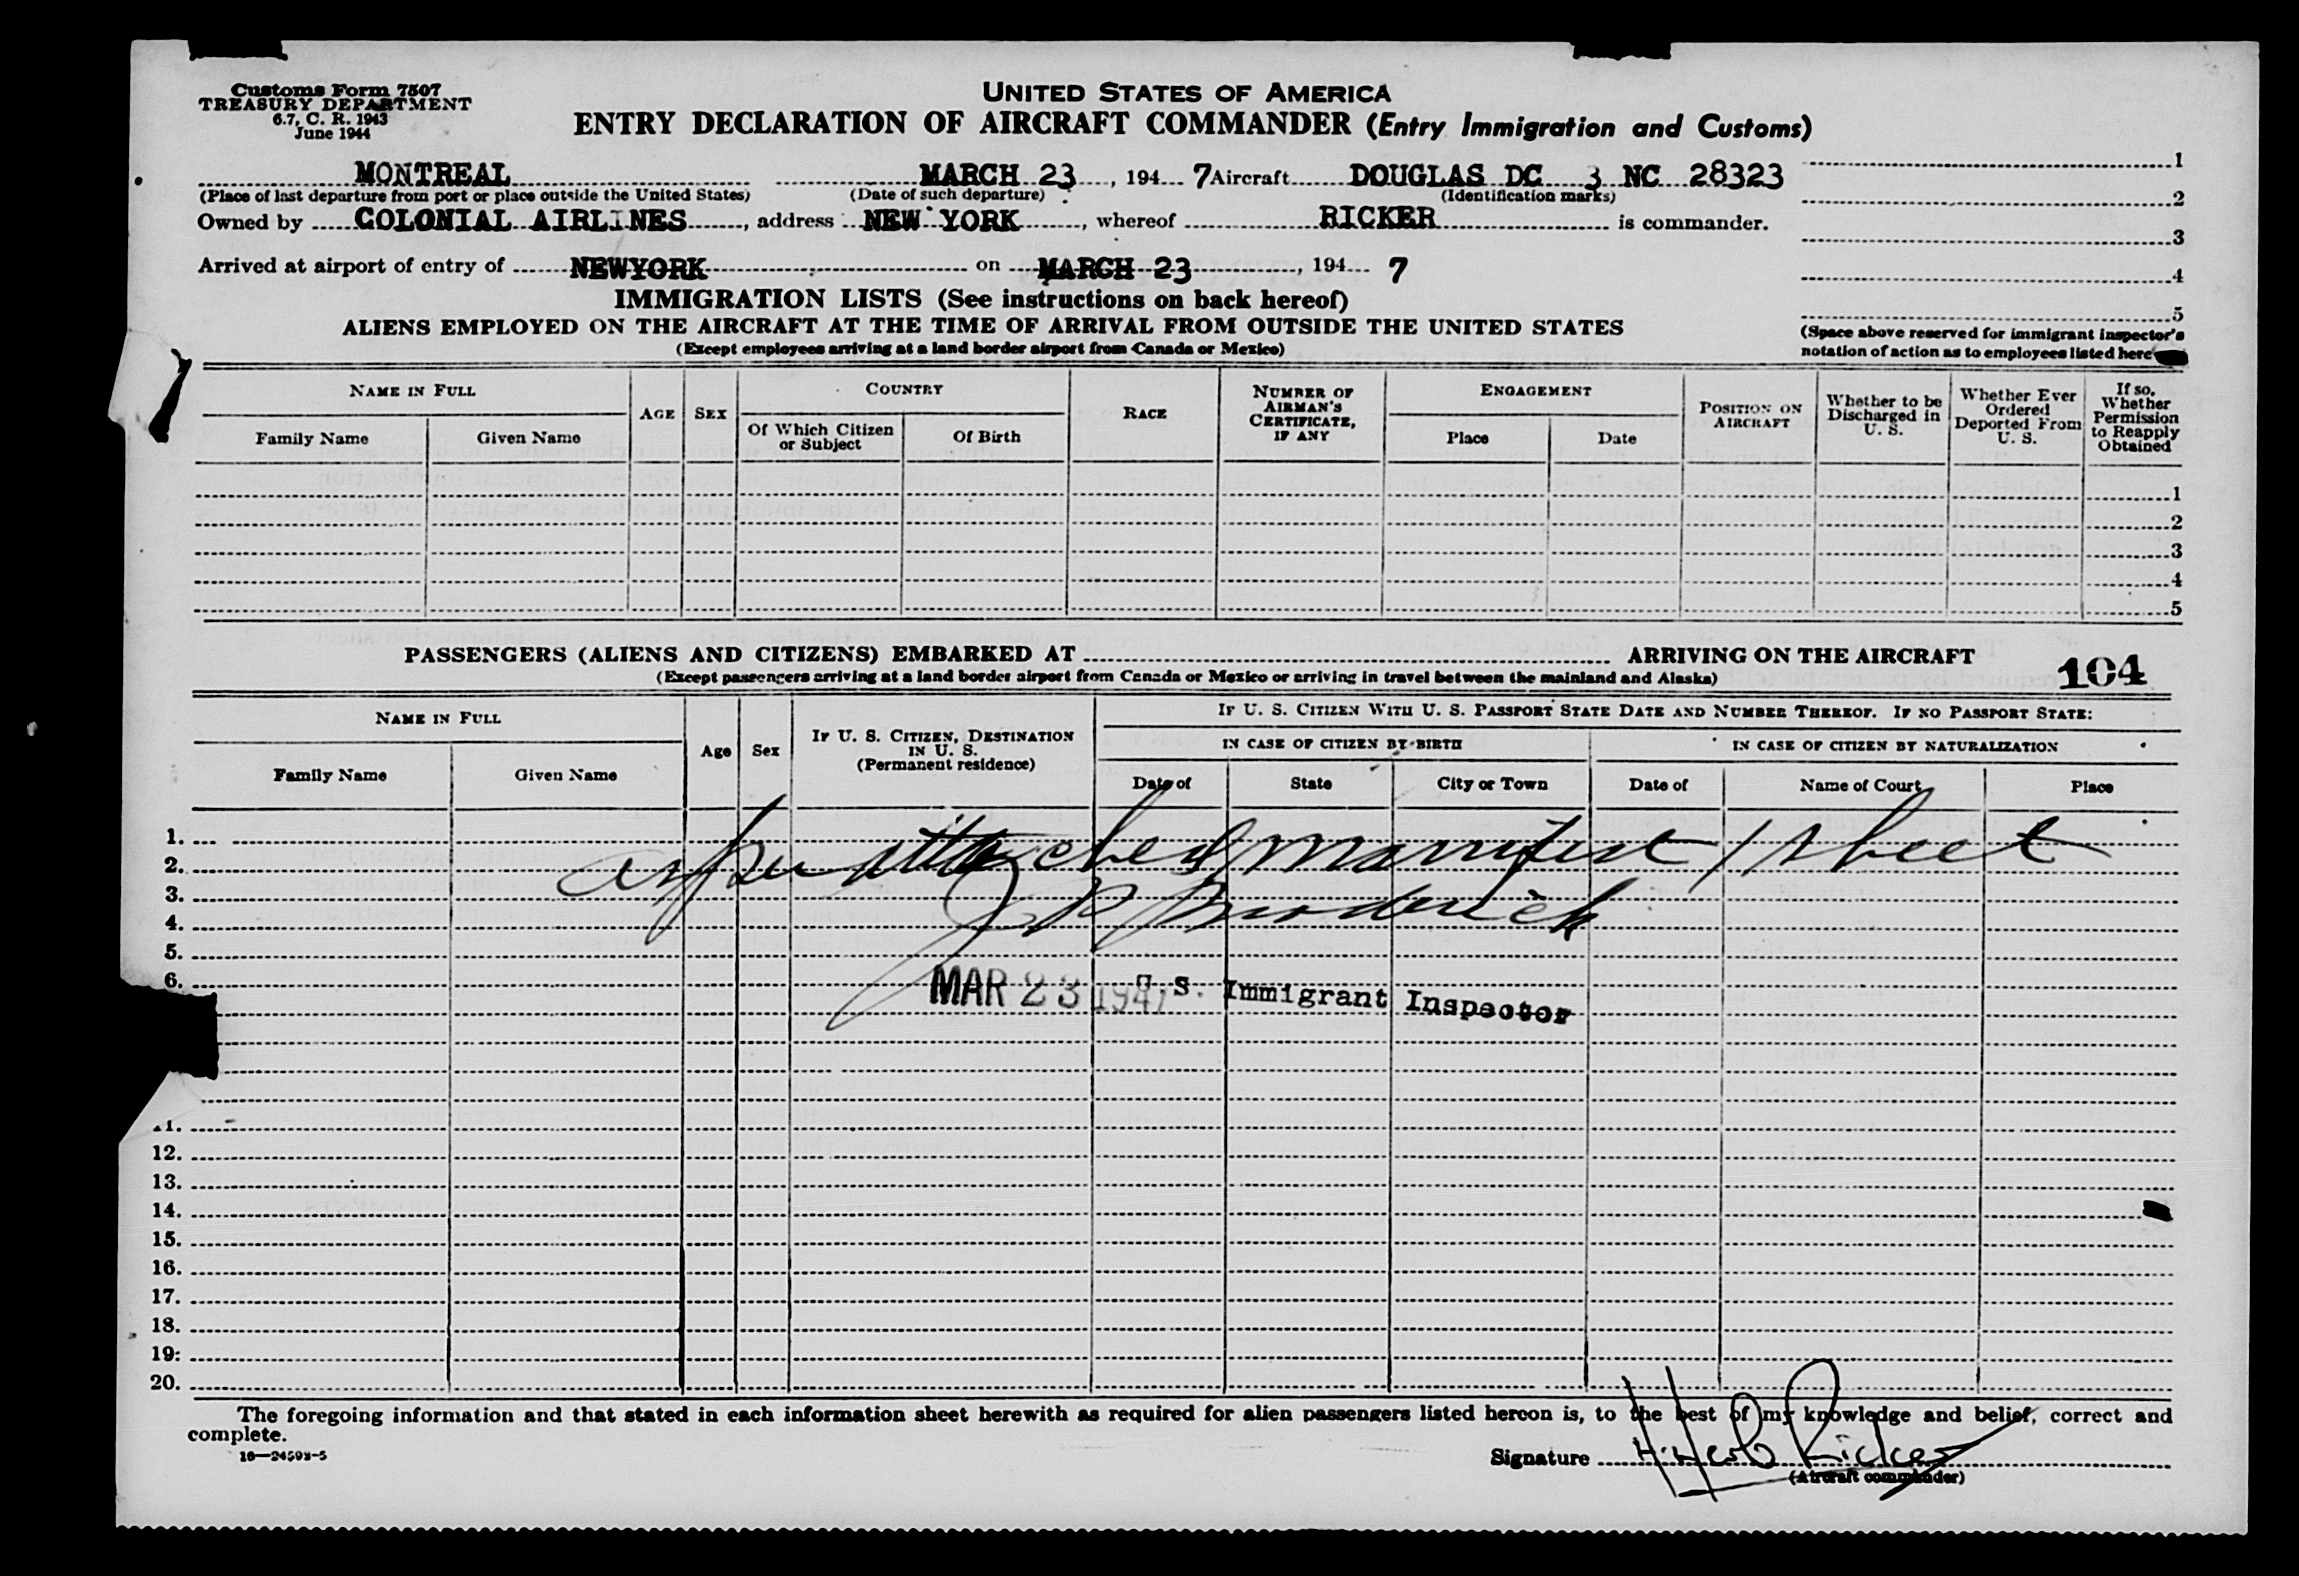 Customs Form 7507
TREASURY DEPARTMENT
6.7, C. R. 1943
June 1944
UNITED STATES OF AMERICA
ENTRY DECLARATION OF AIRCRAFT COMMANDER (Entry Immigration and Customs)
MONTREAL MARCH 23, 194 7 Aircraft DOUGLAS DC 3 NC 28323
(Place of last departure from port or place outside the United States) (Date of such departure) (Identification marks)
Owned by COLONIAL AIRLINES, address NEW YORK, whereof RICKER is commander.
Arrived at airport of entry of NEWYORK on MARCH 23, 194 7
1
2
3
4
5
(Space above reserved for immigrant inspector's
notation of action as to employees listed here
IMMIGRATION LISTS (See instructions on back hereof)
ALIENS EMPLOYED ON THE AIRCRAFT AT THE TIME OF ARRIVAL FROM OUTSIDE THE UNITED STATES
(Except employees arriving at a land border airport from Canada or Mexico)
NAME IN FULL
Family Name
Given Name
AGE
SEX
COUNTRY
Of Which Citizen or Subject
Of Birth
RACE
NUMBER OF AIRMAN'S CERTIFICATE, IF ANY
ENGAGEMENT
Place
Date
POSITION ON AIRCRAFT
Whether to be Discharged in U. S.
Whether Ever Ordered Deported From U. S.
If so, Whether Permission to Reapply Obtained
1
2
3
4
5
PASSENGERS (ALIENS AND CITIZENS) EMBARKED AT ARRIVING ON THE AIRCRAFT
104
(Except passengers arriving at a land border airport from Canada or Mexico or arriving in travel between the mainland and Alaska)
NAME IN FULL
Family Name
Given Name
Age
Sex
IF U. S. CITIZEN, DESTINATION IN U. S.
(Permanent residence)
IF U. S. CITIZEN WITH U. S. PASSPORT STATE DATE AND NUMBER THEREOF. IF NO PASSPORT STATE:
IN CASE OF CITIZEN BY BIRTH
Date of
State
City or Town
IN CASE OF CITIZEN BY NATURALIZATION
Date of
Name of Court
Place
1.
2. as per attached manifest 1 sheet
3.
4. J P Broderick
5.
6.
MAR 23 1947 U.S. Immigrant Inspector
11.
12.
13.
14.
15.
16.
17.
18.
19.
20.
The foregoing information and that stated in each information sheet herewith as required for alien passengers listed hereon is, to the best of my knowledge and belief, correct and
complete.
16—24593-5
Signature H. Herb Ricker
(Aircraft commander)